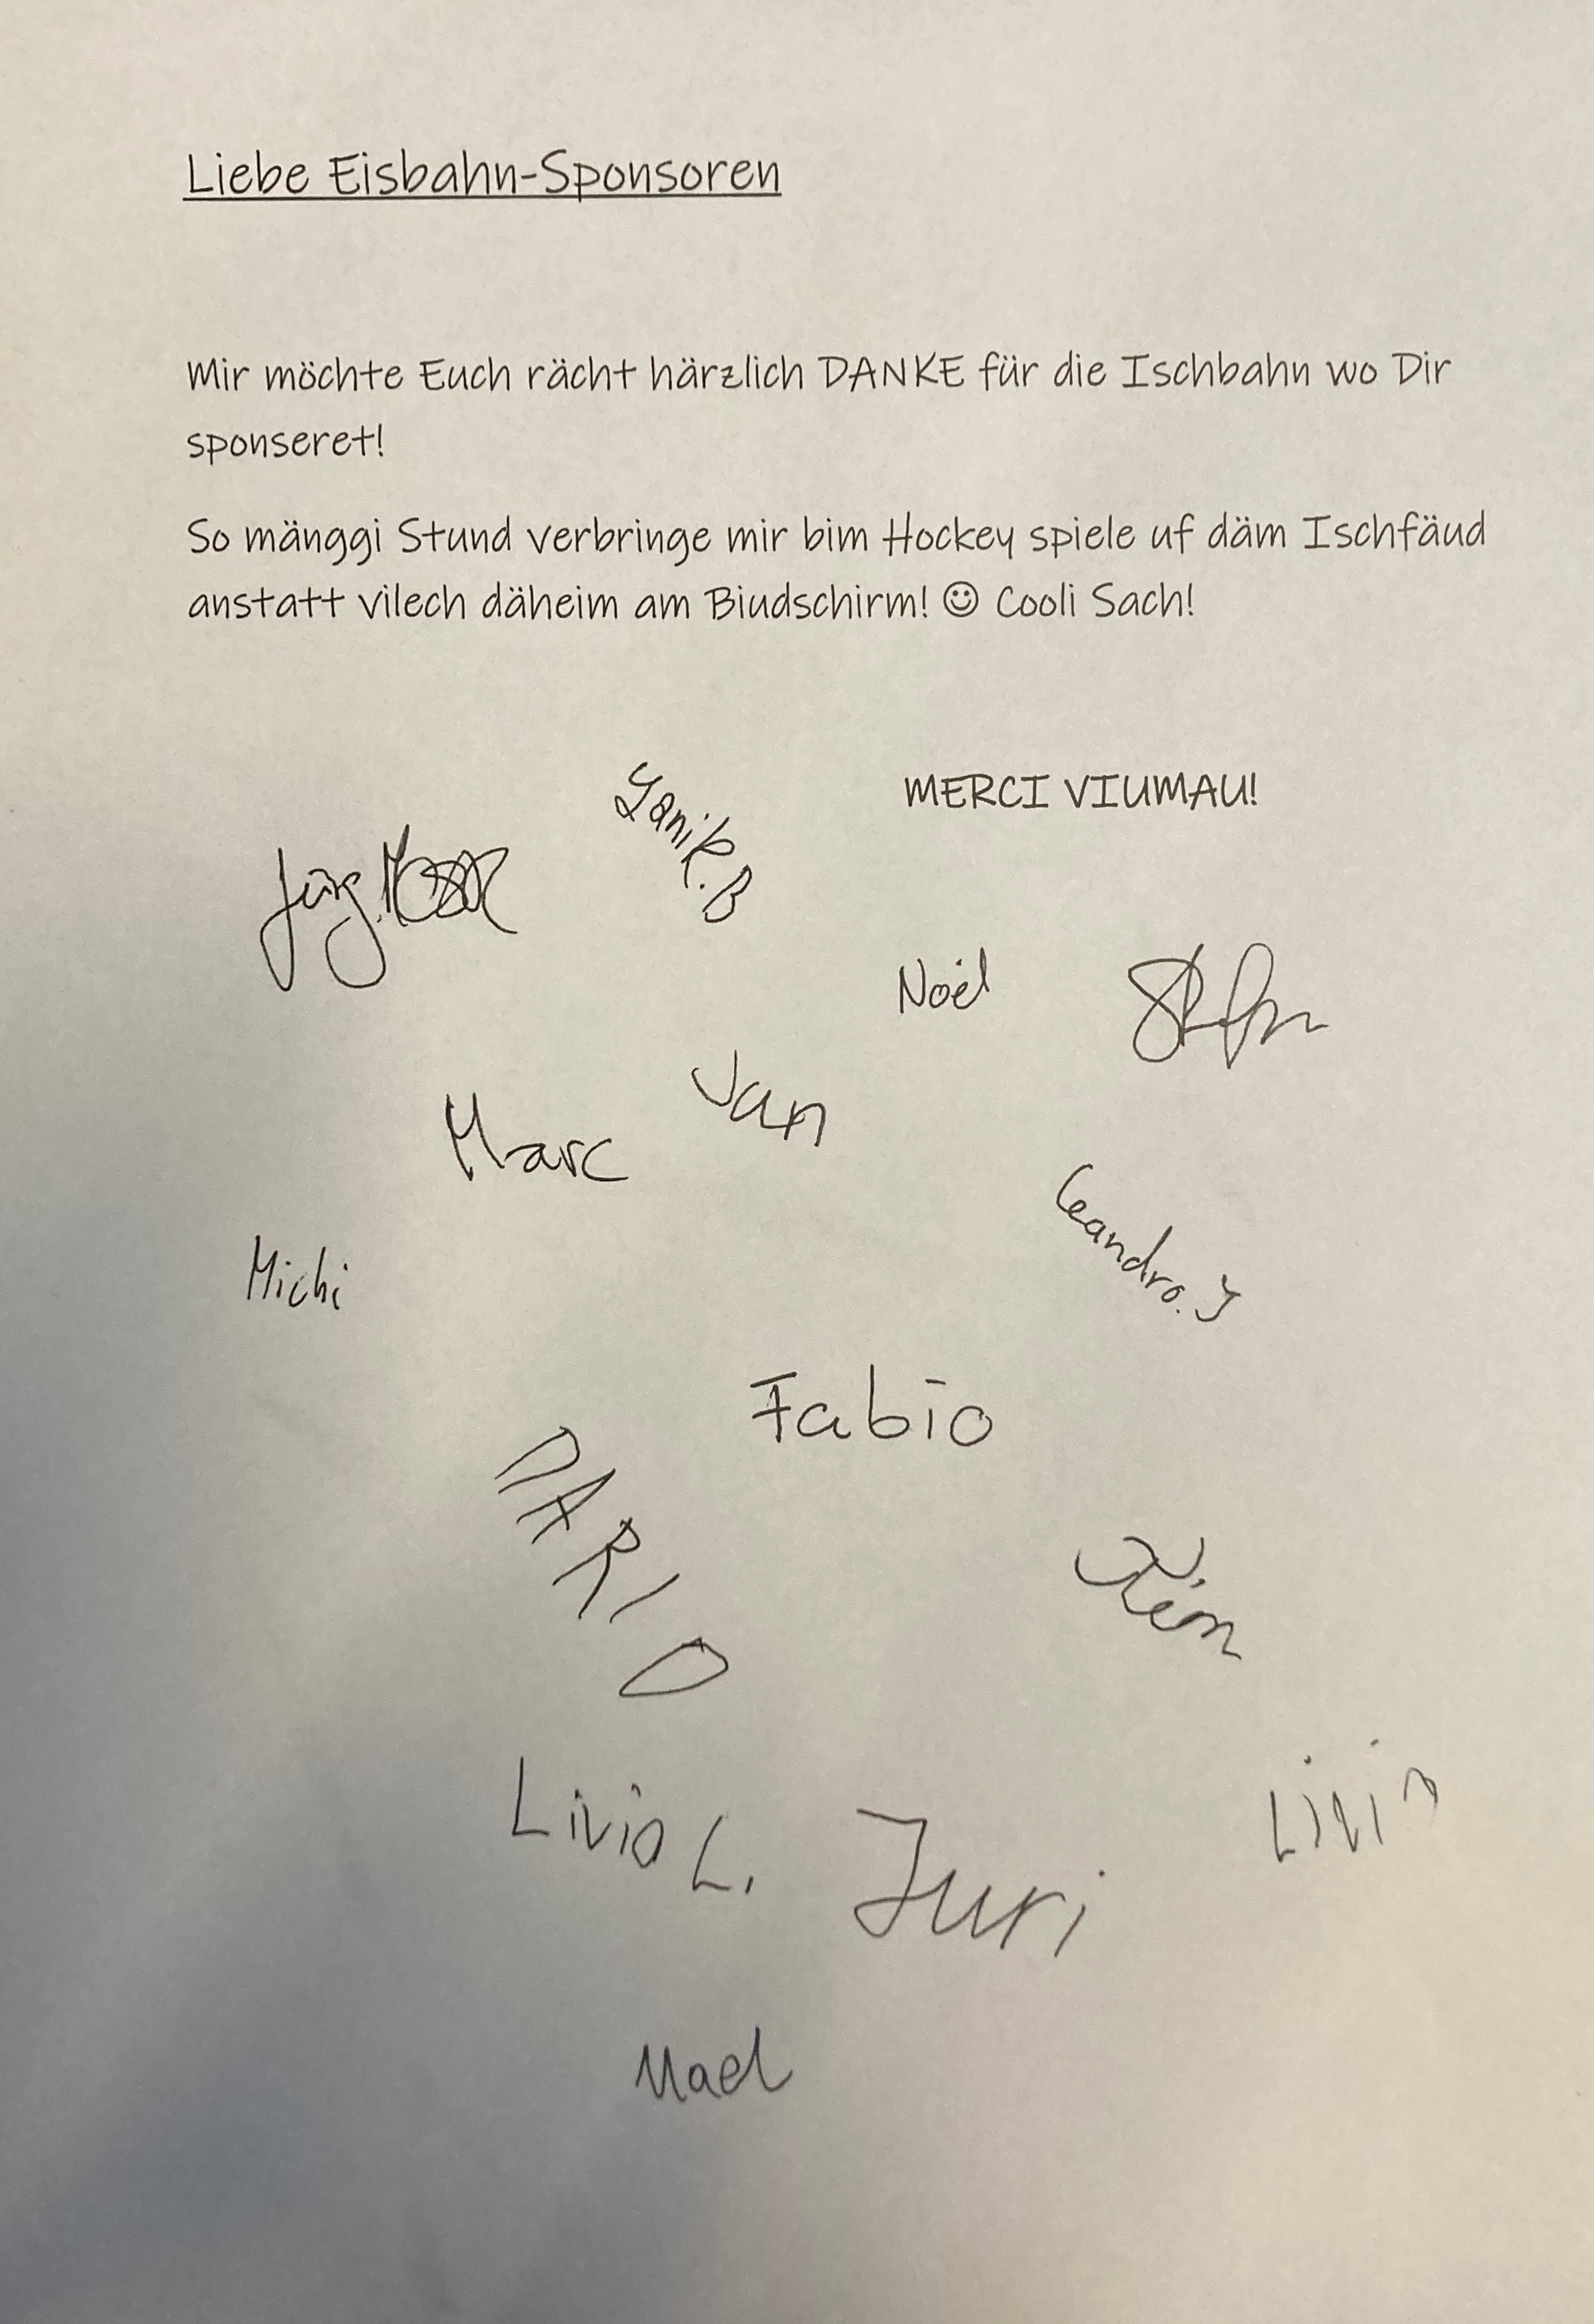 Liebe Eisbahn-Sponsoren
Mir möchte Euch rächt härzlich DANKE für die Ischbahn wo Dir
sponseret!
So mänggi Stund verbringe mir bim Hockey spiele uf däm Ischfäud
anstatt vilech däheim am Biudschirm! ☺ Cooli Sach!
MERCI VIUMAU!
Yanik.B
Jürg
Noël
Jan
Marc
Leandro.J
Michi
Fabio
DARIO
Livio L.
Juri
Livio
Mael